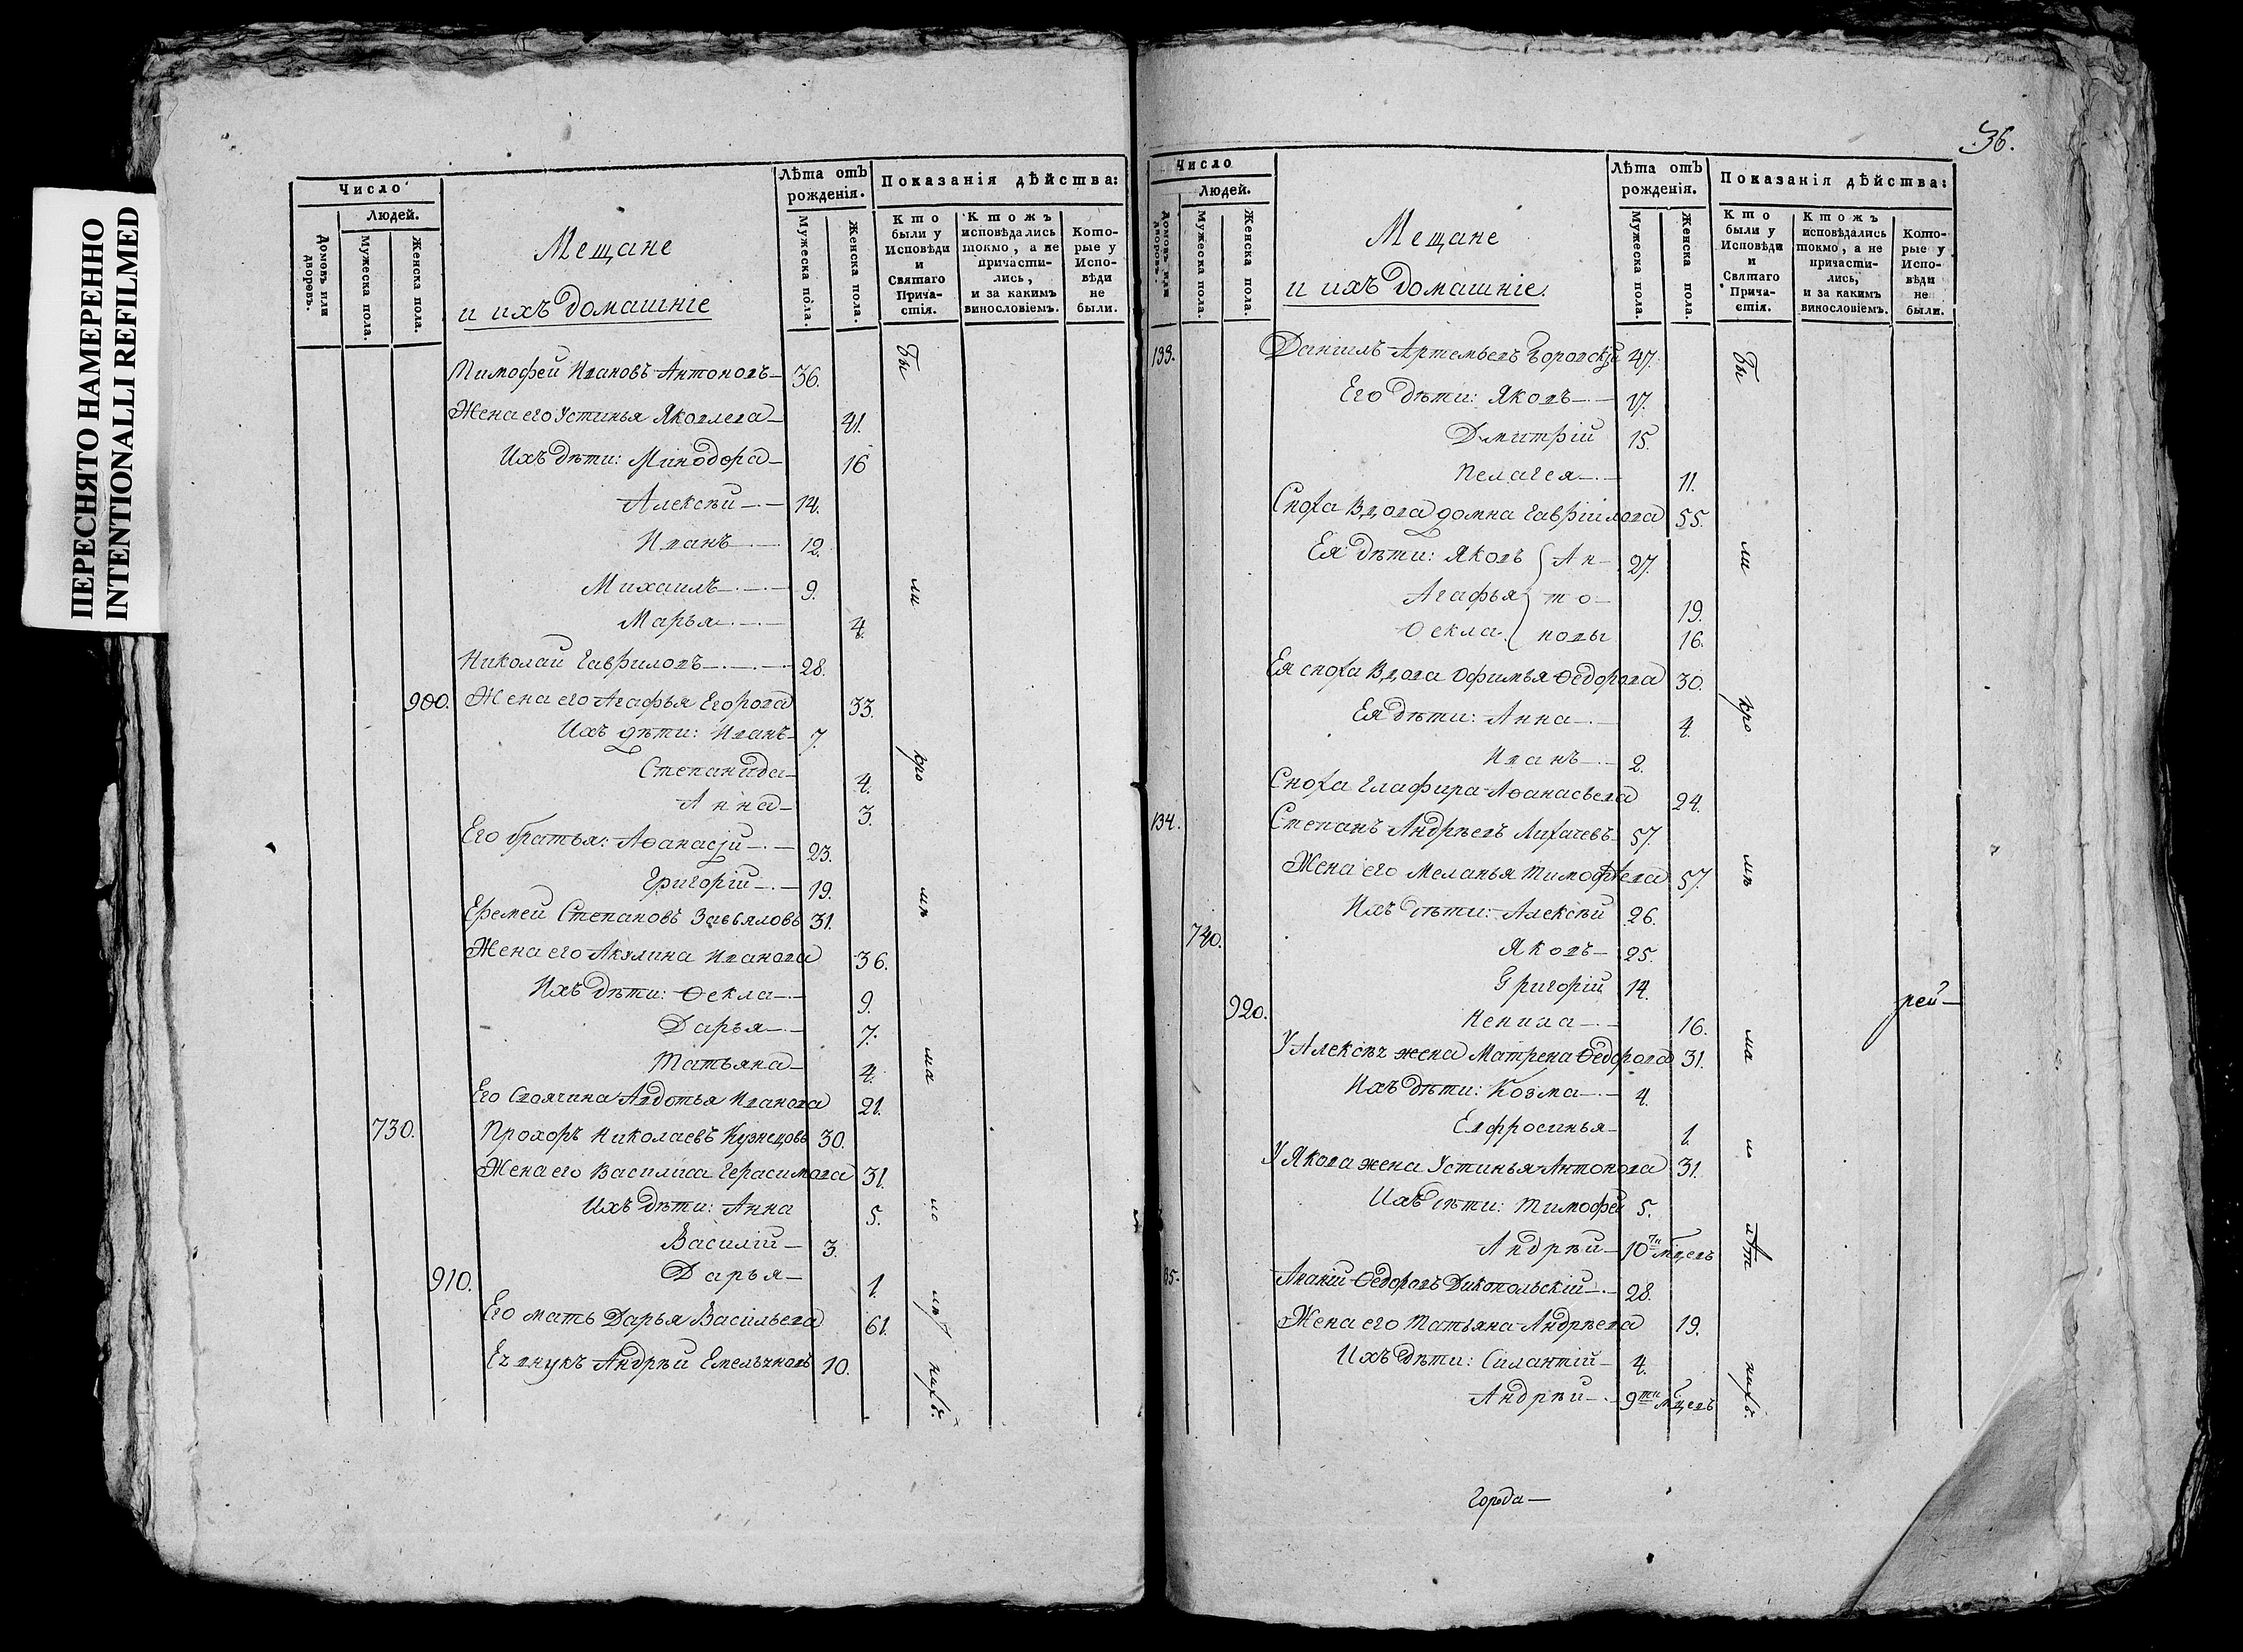 ПЕРЕСНЯТО НАМЕРЕННО
INTENTIONALLI REFILMED
Число
Людей.
Домовъ или дворовъ.
Мужеска пола.
Женска пола.
Мещане
и ихъ домашніе
Лѣта отъ рожденія.
Мужеска пола.
Женска пола.
Показанія дѣйства:
Кто были у Исповѣди и Святаго Прича-стія.
Ктожъ исповѣдались токмо, а не причасти-лись, и за какимъ винословіемъ.
Кото-рые у Испо-вѣди не были.
Тимофей Ивановъ Антоновъ 36.
Жена его Устинья Яковлева 41.
Ихъ дѣти: Минодора 16
Алексѣй 14.
Иванъ 12.
Михаилъ 9.
Марья 4.
Николай Гавриловъ 28.
900. Жена его Агафья Егорова 33.
Ихъ дѣти: Иванъ 7.
Степанида 4.
Анна 3.
Его братья: Аѳанасій 23.
Григорій 19.
Еремей Степановъ Завьяловъ 31.
Жена его Акулина Иванова 36.
Ихъ дѣти: Ѳекла 9.
Дарья 7.
Татьяна 4.
Его своячина Авдотья Иванова 21.
730. Прохоръ Николаевъ Кузнецовъ 30.
Жена его Василиса Герасимова 31.
Ихъ дѣти: Анна 5.
Василій 3.
910. Дарья 1.
Его мать Дарья Васильева 61.
Ея внукъ Андрѣй Емельяновъ 10.
Бы
ли
кро
мѣ
ма
ло
лѣт
нихъ.
36.
Число
Людей.
Домовъ или дворовъ.
Мужеска пола.
Женска пола.
Мещане
и ихъ домашніе.
Лѣта отъ рожденія.
Мужеска пола.
Женска пола.
Показанія дѣйства:
Кто были у Исповѣди и Святаго Прича-стія.
Ктожъ исповѣдались токмо, а не причасти-лись, и за какимъ винословіемъ.
Кото-рые у Испо-вѣди не были.
133. Даніилъ Артемьевъ 47.
Его дѣти: Яковъ 17.
Дмитрій 15.
Пелагея 11.
Сноха вдова Домна Гавріилова 55.
Ея дѣти: Яковъ Ан- 27.
Агафья то- 19.
Ѳекла новы 16.
Ея сноха вдова Офимья Ѳедорова 30.
Ея дѣти: Анна 4.
Иванъ 2.
Сноха Глафира Аѳанасьева 24.
134. Степанъ Андрѣевъ Лихачевъ 57.
Жена его Меланья Тимофѣева 57.
Ихъ дѣти: Алексѣй 26.
740. Яковъ 25.
Григорій 14.
920. Ненила 16.
У Алексѣя жена Матрена Ѳедорова 31.
Ихъ дѣти: Козма 4.
Евфросинья 1.
У Якова жена Устинья Антонова 31.
Ихъ дѣти: Тимофей 5.
Андрѣй 10ти мцевъ
35. Ананій Ѳедоровъ Дикопольскій 28.
Жена его Татьяна Андрѣева 19.
Ихъ дѣти: Силантій 4.
Андрѣй 9ти мцевъ
Бы
ли
кро
мѣ
ма
ло
лѣт
нихъ.
рей
Города